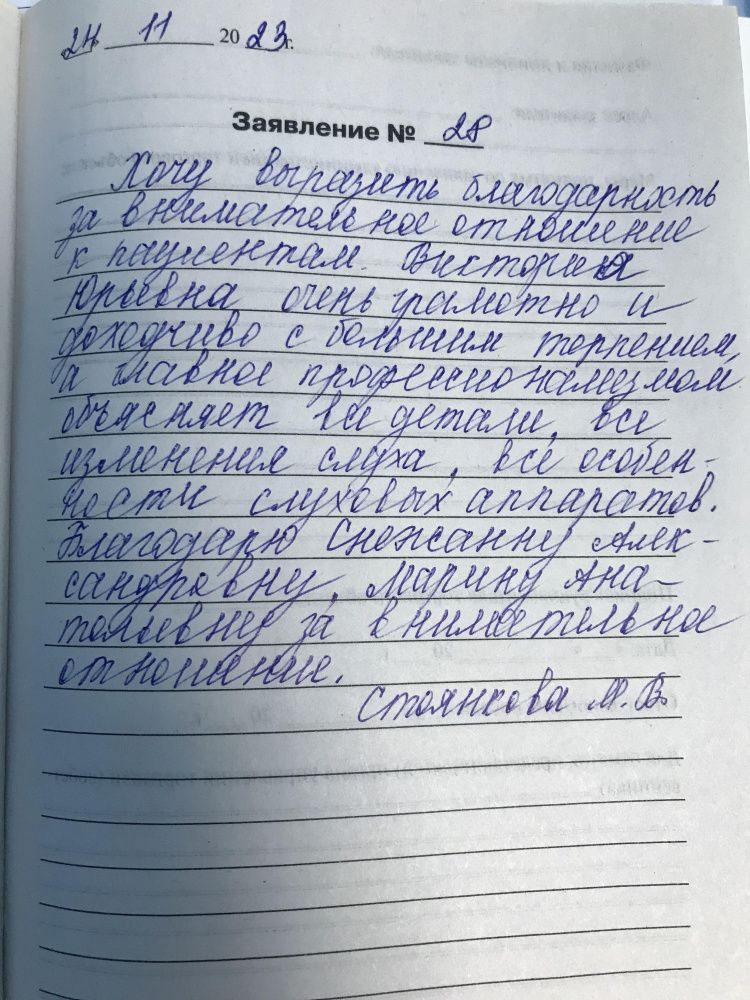 24 11 2023 г.
Заявление № 28
Хочу выразить благодарность
за внимательное отношение
к пациентам. Виктория
Юрьевна очень грамотно и
доходчиво с большим терпением,
а главное профессионализмом
объясняет все детали, все
изменения слуха, все особен-
ности слуховых аппаратов.
Благодарю Снежанну Алек-
сандровну, Марину Ана-
тольевну за внимательное
отношение.
Стоянкова М. В.